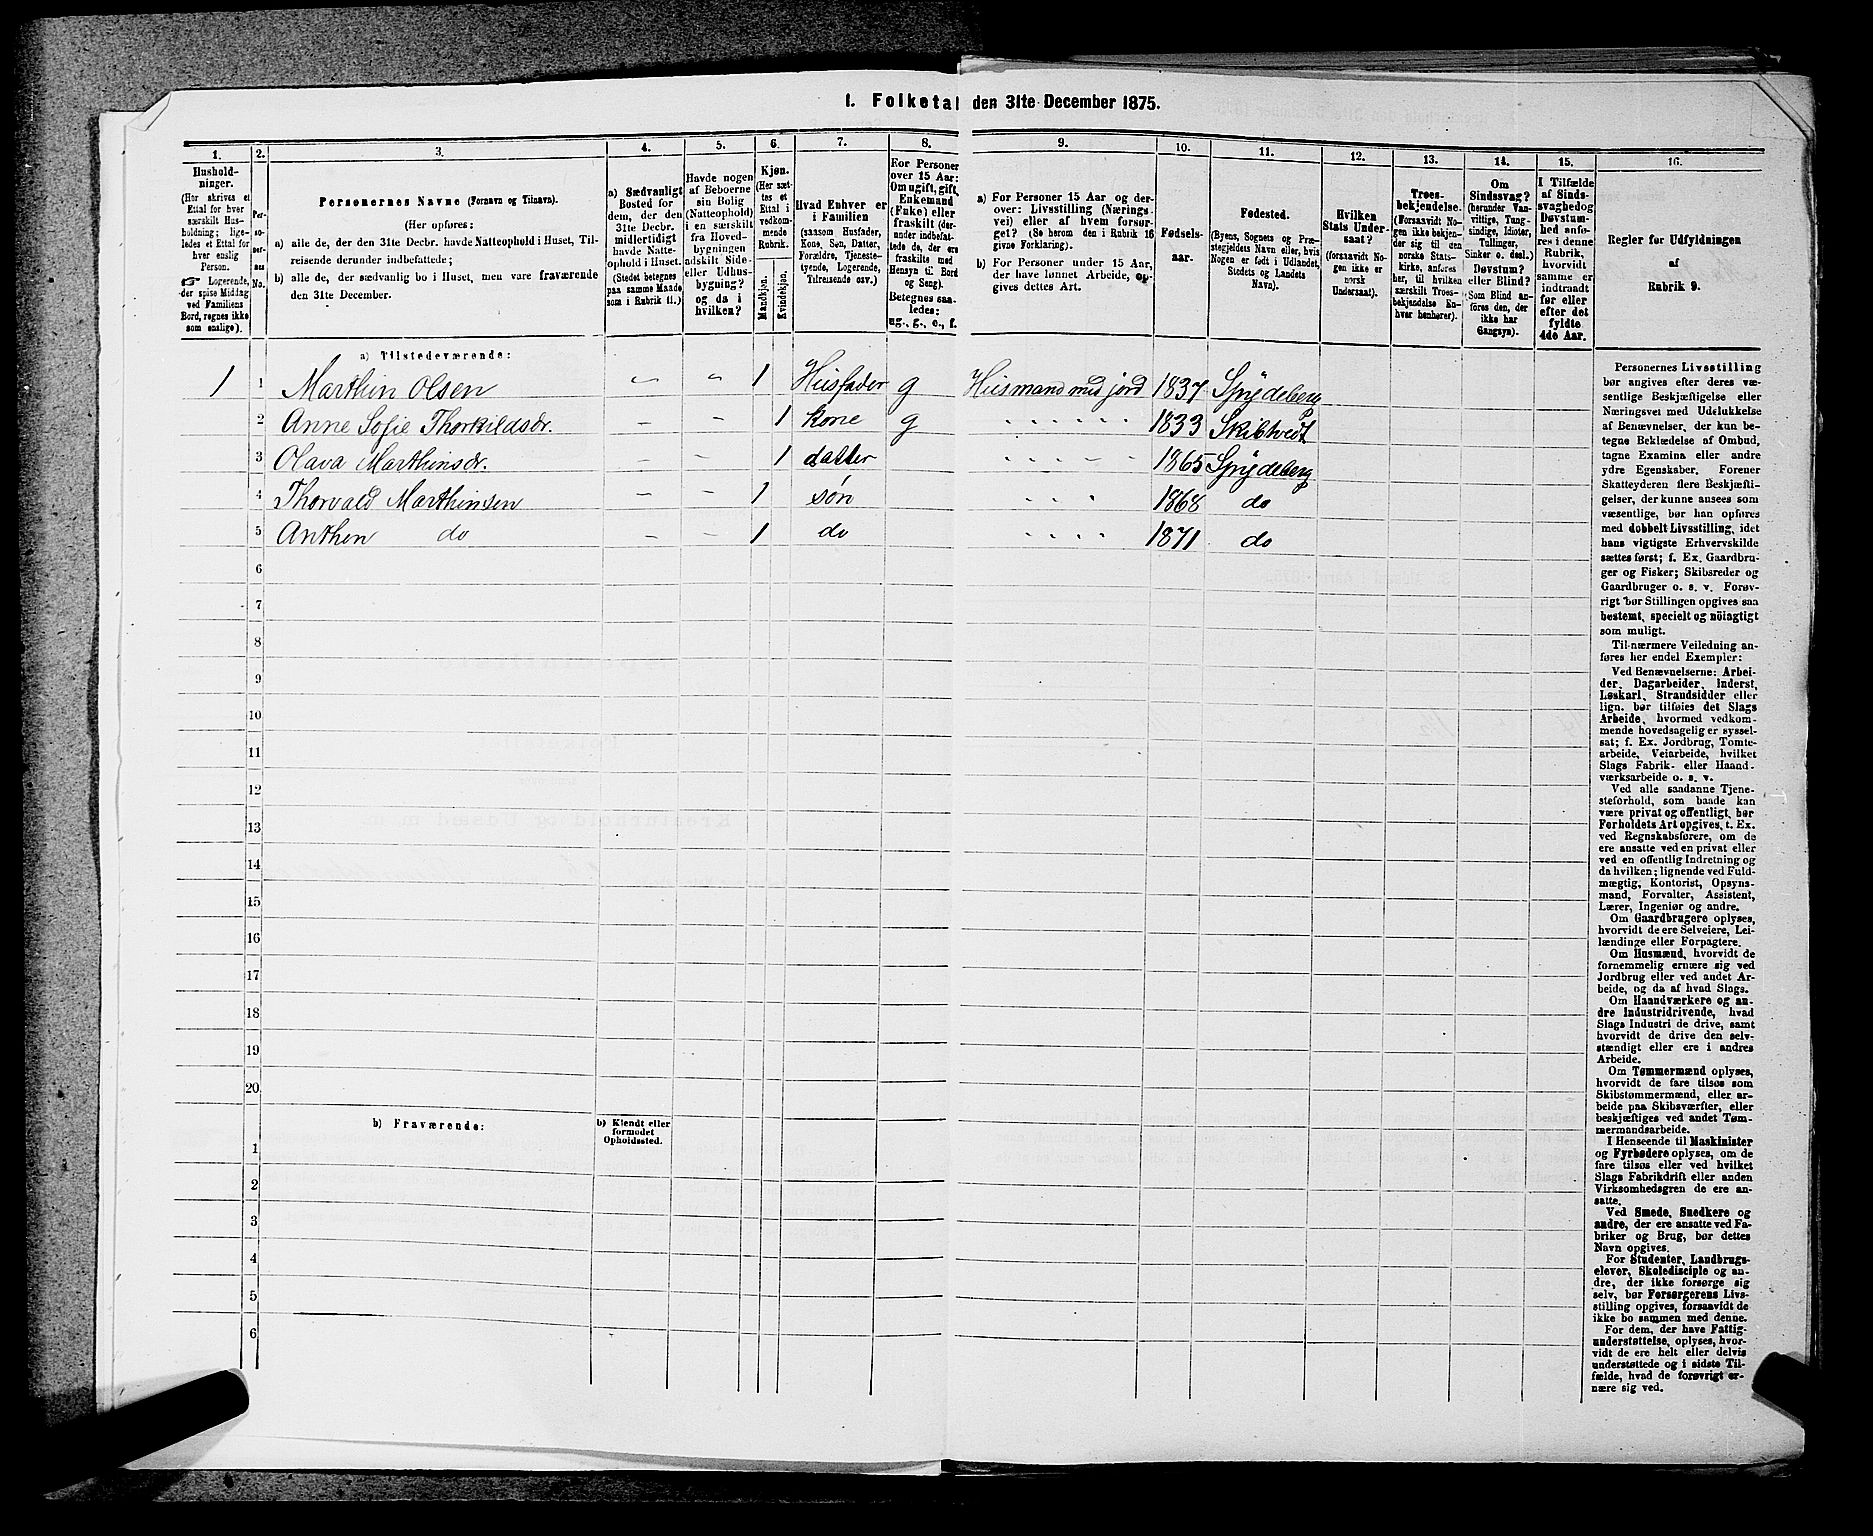 I. Folketal den 31te December 1875.
1. 2. 3. 4. 5. 6. 7. 8. 9. 10. 11. 12. 13. 14. 15. 16.
Husholdninger.
(Her skrives et
Ettal for hver
særskilt Husholdning; ligeledes
et Ettal for
hver enslig
Person.
☞ Logerende,
der spise Middag
ved Familiens
Bord, regnes ikke
som enslige).
Personernes No.
Personernes Navne (Fornavn og Tilnavn).
(Her opføres:
a) alle de, der den 31te Decbr. havde Natteophold i Huset, Tilreisende derunder indbefattede;
b) alle de, der sædvanlig bo i Huset, men vare fraværende
den 31te December.
a) Sædvanligt
Bosted for
dem, der den
31te Decbr.
midlertidigt
havde Natteophold i Huset.
(Stedet betegnes
paa samme Maade
som i Rubrik 11.)
Havde nogen
af Beboerne
sin Bolig
(Natteophold)
i en særskilt
fra Hovedbygningen
adskilt Side-
eller Udhusbygning?
og da i
hvilken?
Kjøn.
(Her sættes et
Ettal i
vedkommende
Rubrik.
Mandkjøn.
Kvindekjøn.
Hvad Enhver er
i Familien
(saasom Husfader,
Kone, Søn, Datter,
Forældre, Tjenestetyende, Logerende,
Tilreisende osv.)
For Personer
over 15 Aar:
Om ugift, gift,
Enkemand
(Enke) eller
fraskilt (derunder indbefattede de, der ere
fraskilte med
Hensyn til Bord
og Seng).
Betegnes saaledes:
ug., g., e., f.
a) For Personer 15 Aar og derover: Livsstilling (Næringsvei) eller af hvem forsørget? (Se herom den i Rubrik 16
givne Forklaring).
b) For Personer under 15 Aar,
der have lønnet Arbeide, opgives dettes Art.
Fødselsaar.
Fødested.
(Byens, Sognets og Præstegjeldets Navn eller, hvis
Nogen er født i Udlandet,
Stedets og Landets
Navn).
Hvilken
Stats Undersaat?
(forsaavidt Nogen ikke er
norsk
Undersaat).
Troesbekjendelse.
(Forsaavidt Nogen ikke bekjender sig til den
norske Statskirke, anføres
her, til hvilken
særskilt Troesbekjendelse Enhver henhører).
Om
Sindssvag?
(herunder Vanvittige, Tungsindige, Idioter,
Tullinger,
Sinker o. desl.)
Døvstum?
eller Blind?
(Som Blind anføres den, der
ikke har
Gangsyn).
I Tilfælde
af Sindssvaghed og
Døvstumhed anføres i denne
Rubrik,
hvorvidt
samme er
indtraadt
før eller
efter det
fyldte
4de Aar.
Regler for Udfyldningen
af
Rubrik 9.
a) Tilstedeværende:
1 1 Marthin Olsen 1 Husfader g Husmand med jord 1837 Spydeberg
2 Anne Sofie Thorkildsdr. 1 kone g 1833 Skibtvedt
3 Olava Marthinsdr. 1 datter 1865 Spydeberg
4 Thorvald Marthinsen 1 søn 1868 do
5 Anthon do 1 do 1871 do
6
7
8
9
10
11
12
13
14
15
16
17
18
19
20
b) Fraværende:
b) Kjendt eller
formodet
Opholdssted.
1
2
3
4
5
6
Personernes Livsstilling
bør angives efter deres væsentlige Beskjæftigelse eller
Næringsvei med Udelukkelse
af Benævnelser, der kun betegne Beklædelse af Ombud,
tagne Examina eller andre
ydre Egenskaber. Forener
Skatteyderen flere Beskjæftigelser, der kunne ansees som
væsentlige, bør han opføres
med dobbelt Livsstilling, idet
hans vigtigste Erhvervskilde
sættes først; f. Ex. Gaardbruger og Fisker; Skibsreder og
Gaardbruger o. s. v. Forøvrigt bør Stillingen opgives saa
bestemt, specielt og nöiagtigt
som muligt.
Til nærmere Veiledning anføres her endel Exempler:
Ved Benævnelserne: Arbeider, Dagarbeider, Inderst,
Løskarl, Strandsidder eller
lign. bør tilføies det Slags
Arbeide, hvormed vedkommende hovedsagelig er sysselsat; f. Ex. Jordbrug, Tomtearbeide, Veiarbeide, hvilket
Slags Fabrik- eller Haandværksarbeide o. s. v.
Ved alle saadanne Tjenesteforhold, som baade kan
være privat og offentligt, bør
Forholdets Art opgives, t. Ex.
ved Regnskabsførere, om de
ere ansatte ved en privat eller
ved en offentlig Indretning og
da hvilken; lignende ved Fuldmægtig, Kontorist, Opsynsmand, Forvalter, Assistent,
Lærer, Ingeniør og andre.
Om Gaardbrugere oplyses,
hvorvidt de ere Selveiere, Leilændinge eller Forpagtere.
Om Husmænd, hvorvidt de
fornemmelig ernære sig ved
Jordbrug eller ved andet Arbeide, og da af hvad Slags.
Om Haandværkere og andre Industridrivende, hvad
Slags Industri de drive, samt
hvorvidt de drive den selvstændigt eller ere i andres
Arbeide.
Om Tømmermænd oplyses,
hvorvidt de fare tilsøs som
Skibstømmermænd, eller arbeide paa Skibsværfter, eller
beskjæftiges ved andet Tømmermandsarbeide.
I Henseende til Maskinister
og Fyrbødere oplyses, om de
fare tilsøs eller ved hvilket
Slags Fabrikdrift eller anden
Virksomhedsgren de ere ansatte.
Ved Smede, Snedkere og
andre, der ere ansatte ved Fabriker og Brug, bør dettes
Navn opgives.
For Studenter, Landbrugselever, Skoledisciple og andre, der ikke forsørge sig
selv, bør Forsørgerens Livsstilling opgives, forsaavidt de
ikke bo sammen med denne.
For dem, der have Fattigunderstøttelse, oplyses, hvorvidt de ere helt eller delvis
understøttede og i sidste Tilfælde, hvad de forøvrigt ernære sig ved.